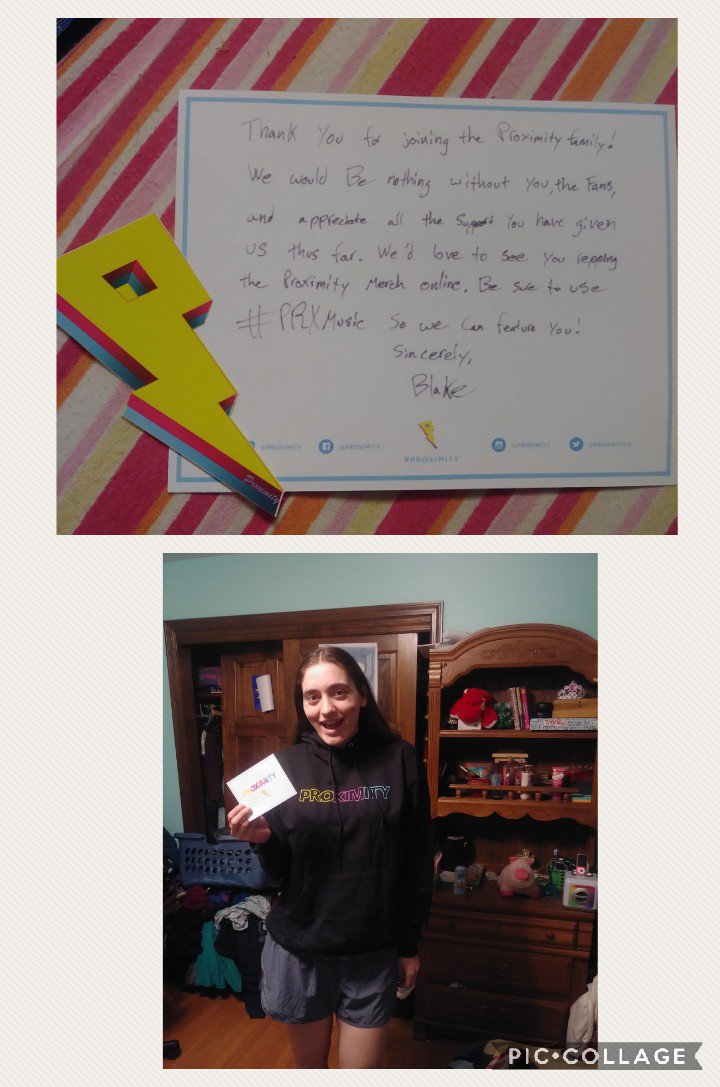 Thank You for joining the Proximity family!
We would Be nothing without You, the Fans,
and appreciate all the Support You have given
US thus far. We'd love to see You repping
the Proximity Merch online. Be sure to use
#PRXMusic So we can feature You!
Sincerely,
Blake
@PROXIMITY @PROXIMITY #PROXIMITY @PROXIMITY @PROXIMITYM
Proximity
PROXIMITY
PROXIMITY
PIC•COLLAGE